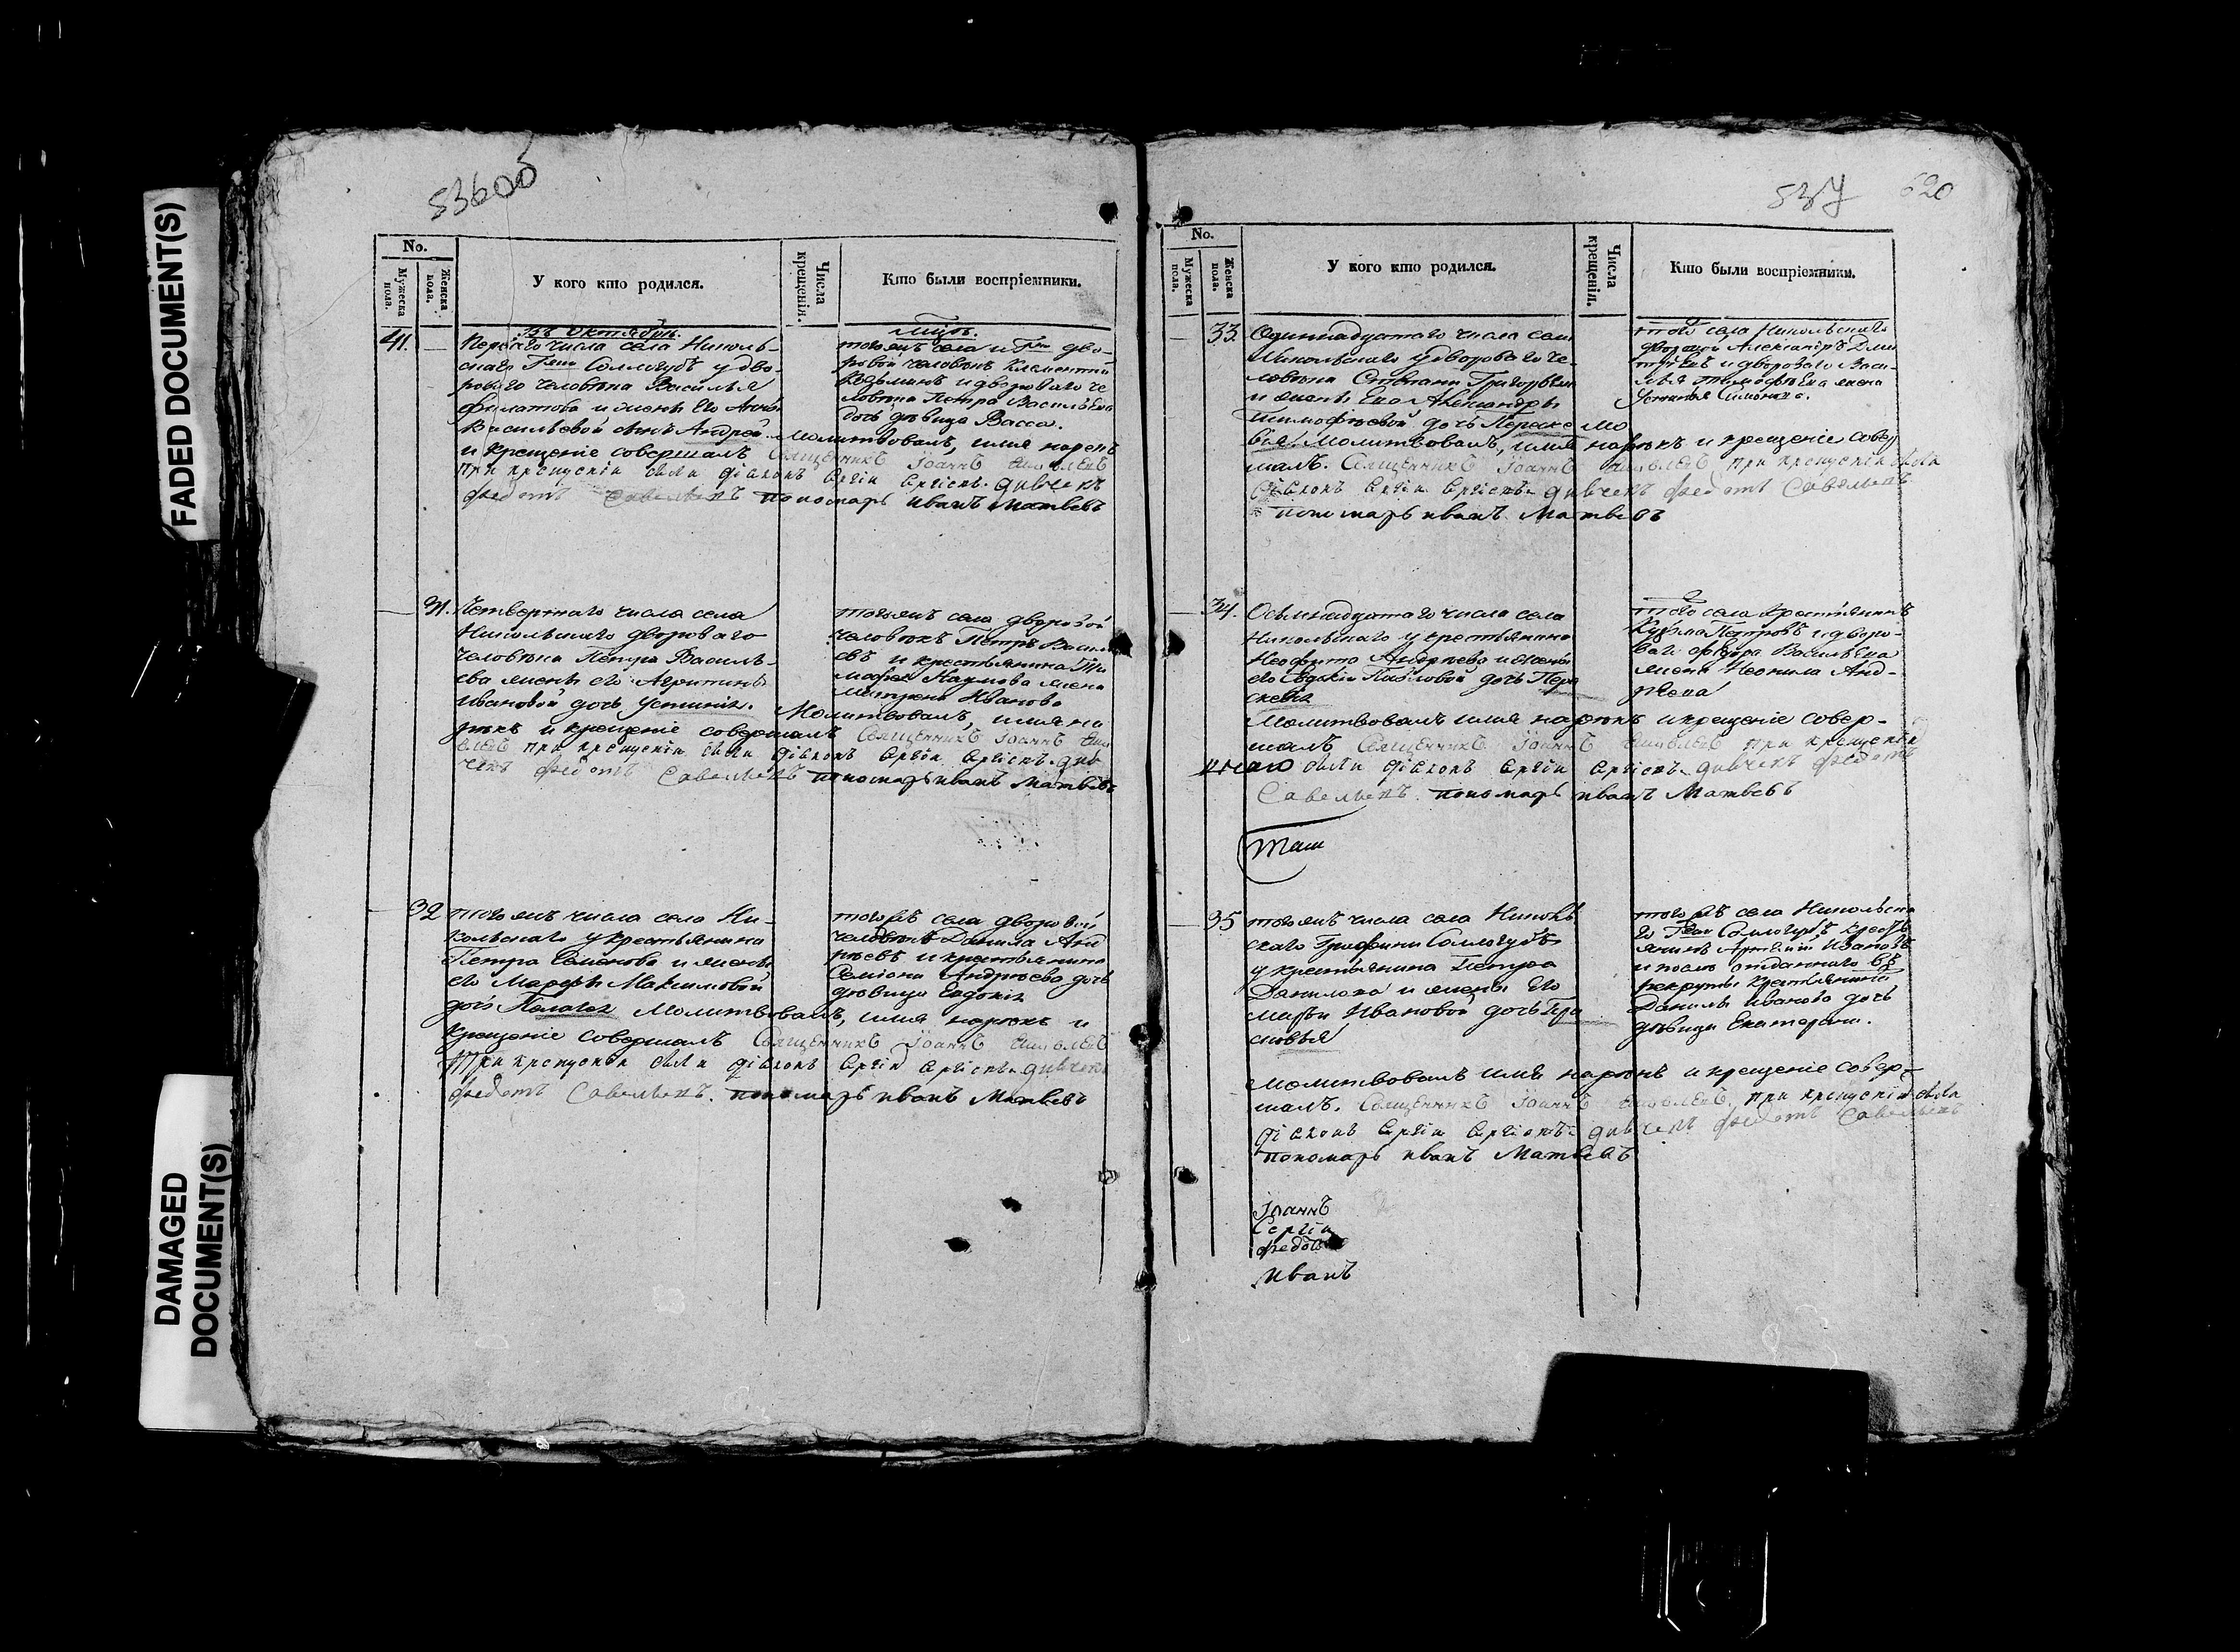 FADED DOCUMENT(S)
DAMAGED DOCUMENT(S)
53600
No.
Мужеска пола.
Женска пола.
У кого кто родился.
Числа крещенія.
Кто были воспріемники.
41.
въ Октябрѣ
Перваго числа села Николь-
скаго Гжи Соллогубъ у дво-
роваго человѣка Василья
Филатова и жены его Анны
Васильевой сынъ Андрей.
тогожъ села и Гжи дво-
ровой человѣкъ Климентій
Козьминъ и двороваго че
ловѣка Петра Васильева
дочь дѣвица Васса.
Молитвовалъ, имя нарекъ
и крещеніе совершалъ Священникъ Іоаннъ
при крещеніи были діаконъ Сергіи Сергіевъ. дьячекъ
Федотъ Савельевъ пономарь иванъ Матвеевъ
31.
Четвертаго числа села
Никольскаго двороваго
человѣка Петра Василь-
ева жены его Агрипины
Ивановой дочь Устинія.
тогожъ села дворовой
человѣкъ Петръ Василь
евъ и крестьянина Ти
мофея Наумова жена
Матрена Иванова
Молитвовалъ, имя на
рекъ и крещеніе совершалъ Священникъ Іоаннъ
при крещеніи были діаконъ Сергіи Сергіевъ. дья
чекъ Федотъ Савельевъ пономарь иванъ Матвеевъ
32
тогожъ числа села Ни-
кольскаго у крестьянина
Петра Семенова и жены
его Марфы Максимовой
дочь Пелагея
тогожъ села дворовой
человѣкъ Данила Анд
реевъ и крестьянина
Семіона Андреева дочь
дѣвица Евдокія
Молитвовалъ, имя нарекъ и
крещеніе совершалъ Священникъ Іоаннъ
При крещеніи были діаконъ Сергіи Сергіевъ. дьячекъ
Федотъ Савельевъ. пономарь иванъ Матвеевъ
537
620
No.
Мужеска пола.
Женска пола.
У кого кто родился.
Числа крещенія.
Кто были воспріемники.
33.
Одиннадцатаго числа села
Никольскаго у двороваго че-
ловѣка Степана Григорьева
и жены Его Александры
Тимофѣевой дочь
того села Никольскаго
дворовой Александръ Дми
тріевъ и двороваго Васи-
лья Тимофѣева жена
Устинья Симонова.
Молитвовалъ, имя нарекъ и крещеніе совер
шалъ. Священникъ Іоаннъ при крещеніи были
діаконъ Сергіи Сергіевъ. дьячекъ Федотъ Савельевъ
пономарь иванъ Матвеевъ
34.
Осьмнадцатаго числа села
Никольскаго у крестьянина
Неофита Андреева и жены
его Евдокіи Павловой дочь Пара
скевія
того села крестьянинъ
Кузьма Петровъ и дворо-
ваго Федора Васильева
жена Неонила Анд-
реева
Молитвовалъ имя нарекъ и крещеніе совер-
шалъ Священникъ Іоаннъ при крещеніи
были діаконъ Сергіи Сергіевъ. дьячекъ Федотъ
Савельевъ. пономарь иванъ Матвеевъ
35
тогожъ числа села Николь
скаго Графини Соллогубъ
у крестьянина Петра
Данилова и жены его
Марьи Ивановой дочь Пра
сковья
тогожъ села Никольска
го Гжи Соллогубъ крестья
янинъ Артемій Ивановъ
и послѣ отданнаго въ
рекруты крестьянина
Данилы Иванова дочь
дѣвица Екатерина.
Молитвовалъ имя нарекъ и крещеніе совер-
шалъ. Священникъ Іоаннъ при крещеніи были
діаконъ Сергіи Сергіевъ. дьячекъ Федотъ Савельевъ
пономарь иванъ Матвеевъ
Іоаннъ
Сергіи
Федотъ
Иванъ